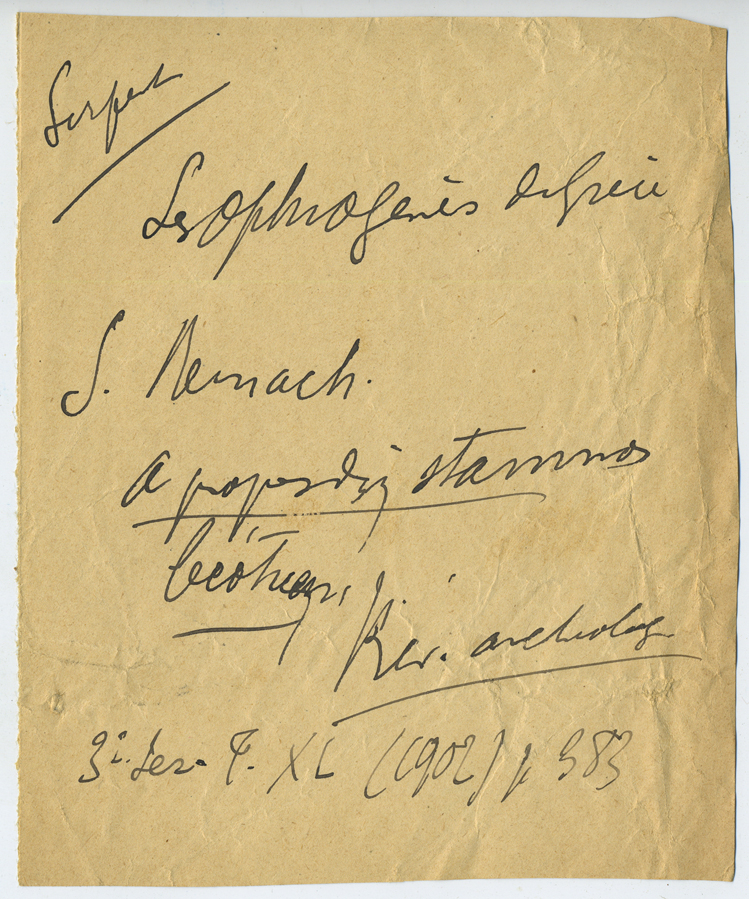 Serpent
Les Ophiogenès de Grèce
S. Reinach.
a propos d'un stamnos
béotien,
Rev. archeolog
3e. Ser. T. XL (1902) p. 383